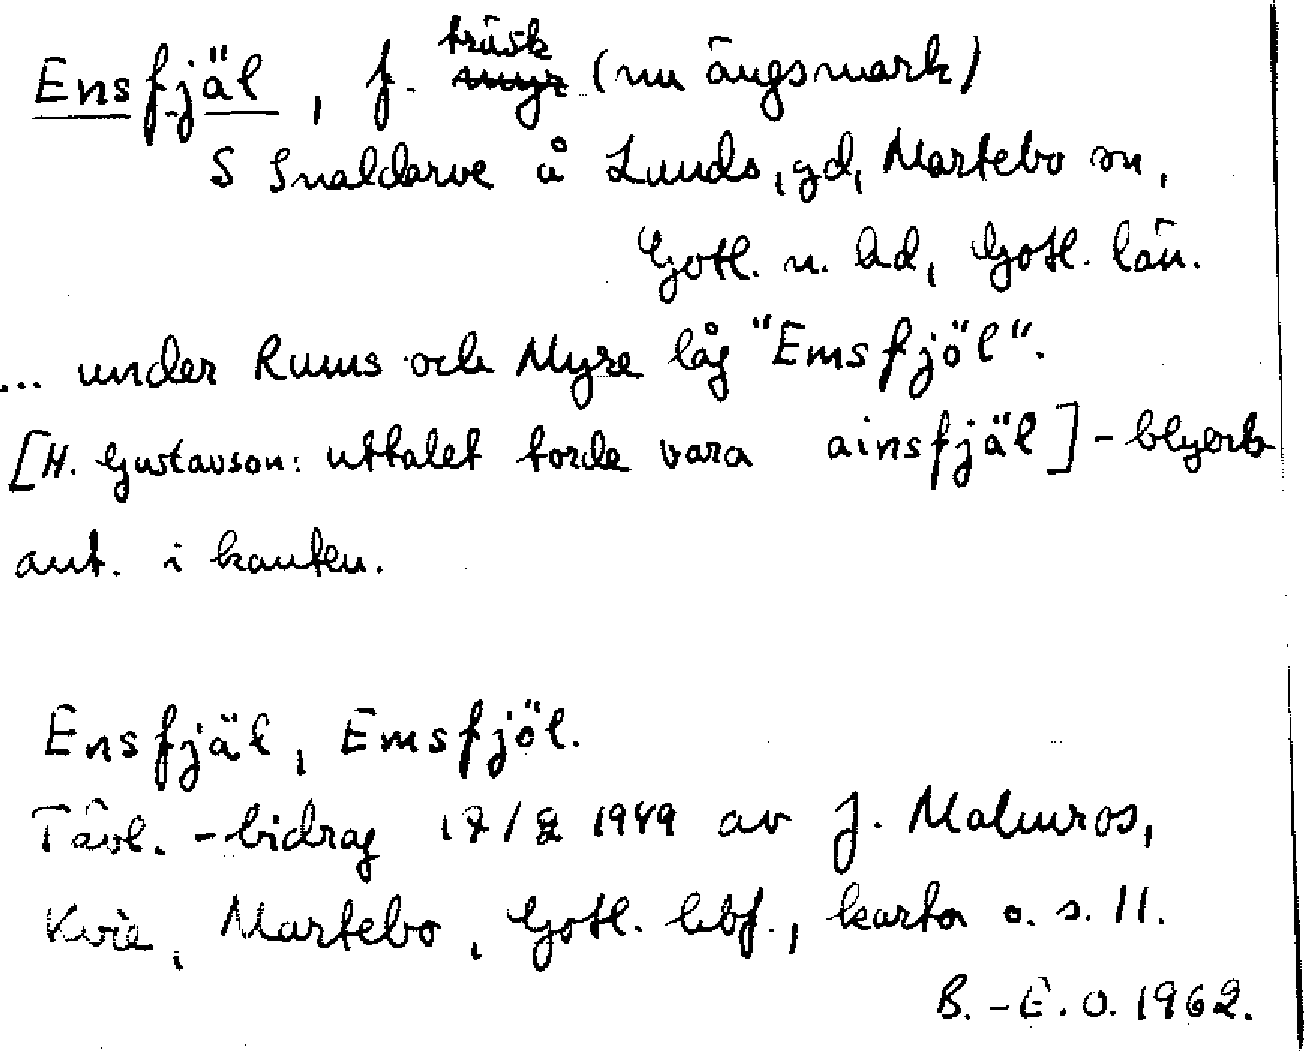 Ensfjäl, f. träsk (nu ängsmark)
S Snaldarve å Lunds, gd, Martebo sn,
Gotl. n. hd, Gotl. län.
... under Rums och Myre låg "Emsfjöl".
[H. Gustavson: uttalet torde vara ainsfjäl] - blyerts
ant. i kanten.
Ensfjäl, Emsfjöl.
Tävl. - bidrag 17/2 1949 av J. Malmros,
Kvie, Martebo, Gotl. lbf., karta o. s. 11.
B. - E. O. 1962.